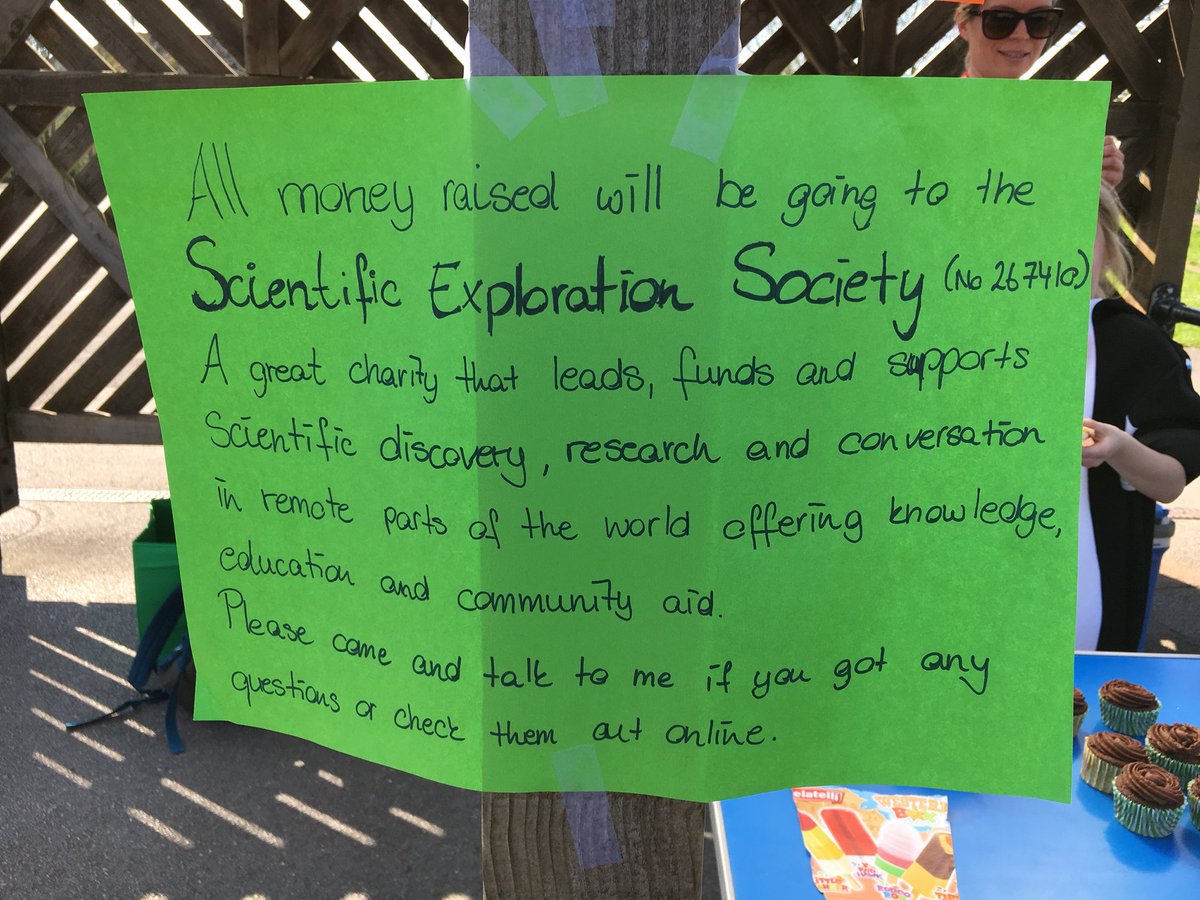 All money raised will be going to the
Scientific Exploration Society (No 267410)
A great charity that leads, funds and supports
Scientific discovery, research and conversation
in remote parts of the world offering knowledge,
education and community aid.
Please come and talk to me if you got any
questions or check them out online.
elatelli
WESTERN
BOX